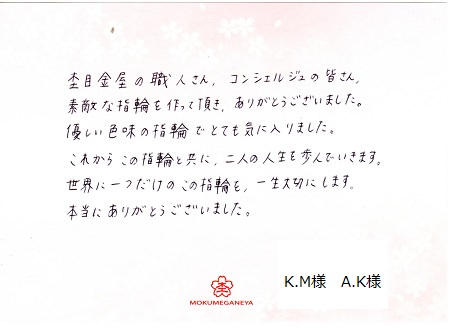 杢目金屋の職人さん、コンシェルジュの皆さん、
素敵な指輪を作って頂き、ありがとうございました。
優しい色味の指輪でとても気に入りました。
これからこの指輪と共に、二人の人生を歩んでいきます。
世界に一つだけのこの指輪を、一生大切にします。
本当にありがとうございました。
K.M様 A.K様
MOKUMEGANEYA